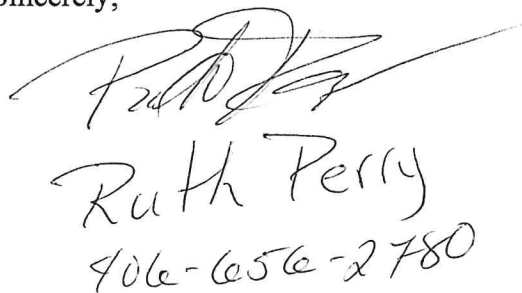 Sincerely,
Ruth Perry
406-656-2780